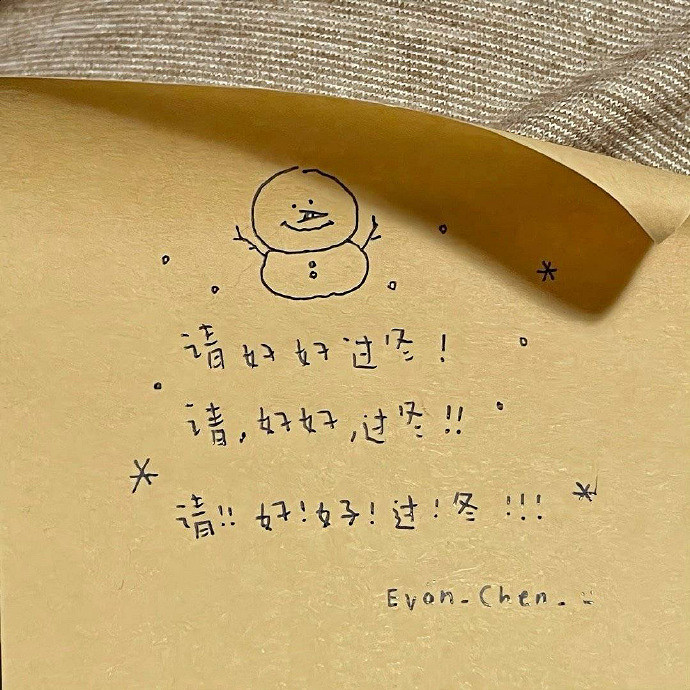 请好好过冬!
请,好好,过冬!!
请!!好!好!过!冬!!!
Evan-Chen-